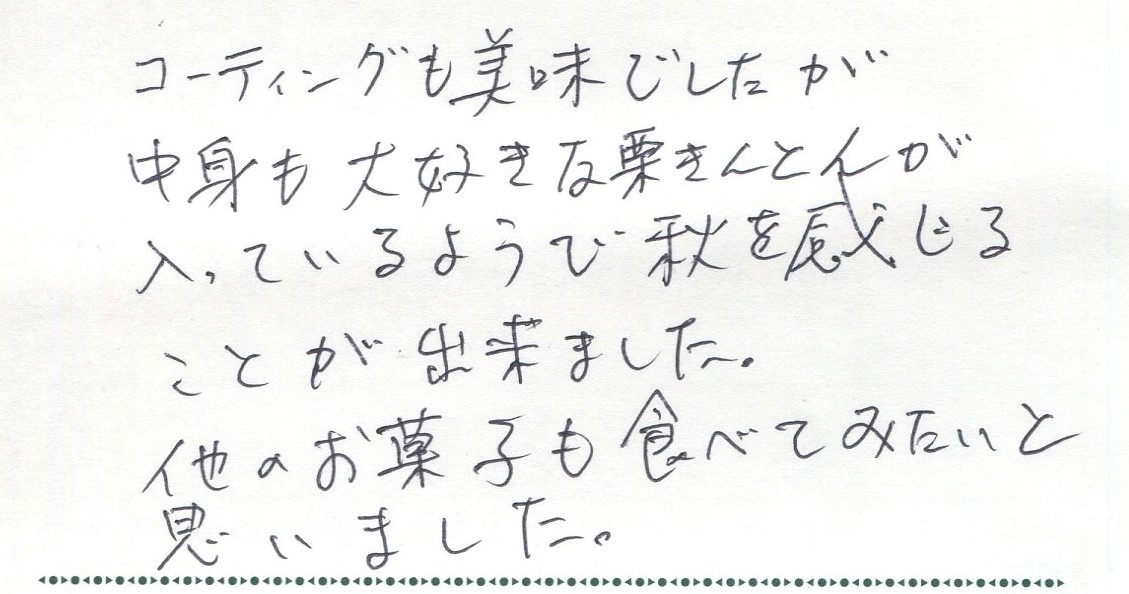 コーティングも美味でしたが
中身も大好きな栗きんとんが
入っているようで秋を感じる
ことが出来ました。
他のお菓子も食べてみたいと
思いました。